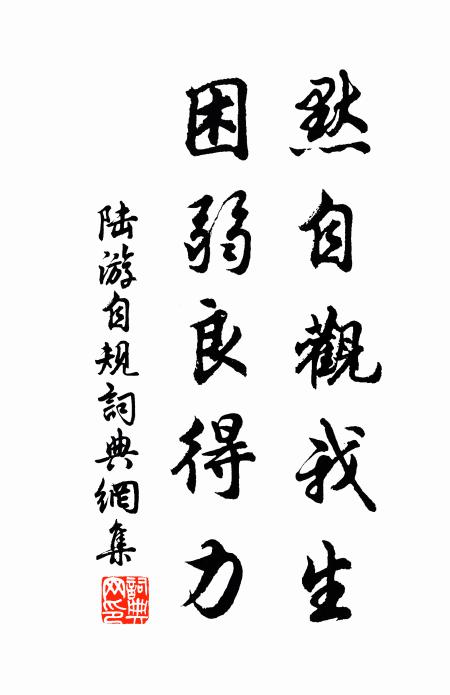 黙自觀我生
困弱良得力
陆游自规詞典網集
詞典
网印